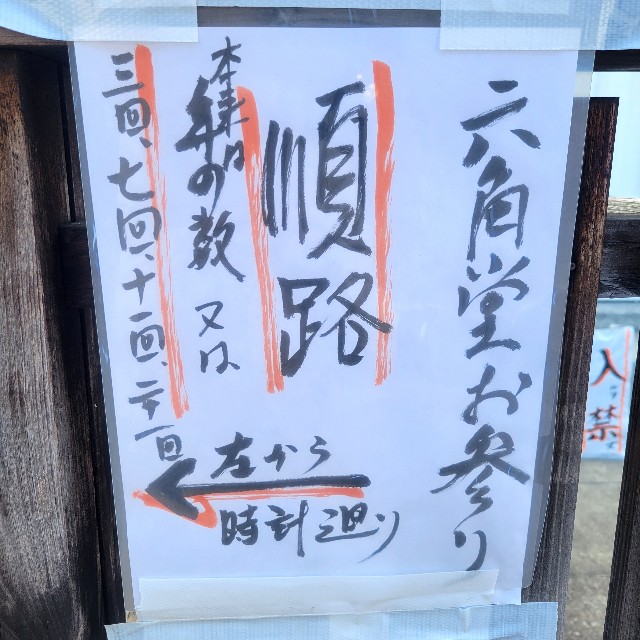 六角堂お参り
順路
年の数又は
三回、七回、十一回、二十一回
左から
時計廻り
入
禁